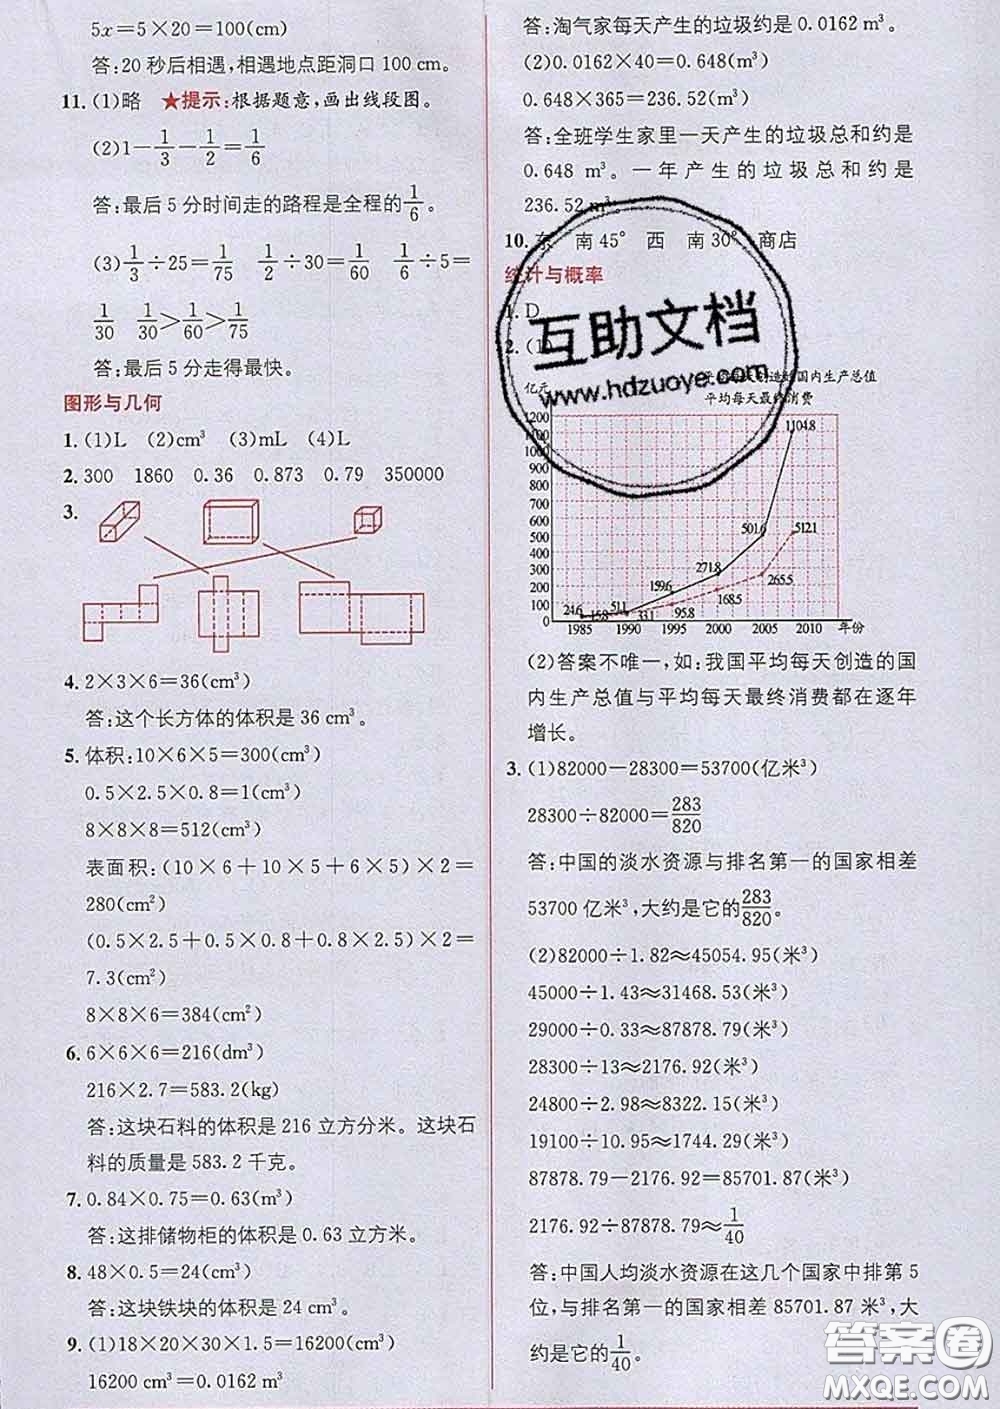 5x=5×20=100(cm)
答:20 秒后相遇,相遇地点距洞口 100 cm。
11. (1)略 ★提示:根据题意,画出线段图。
(2)1-1/3-1/2=1/6
答:最后 5 分时间走的路程是全程的1/6。
(3)1/3÷25=1/75 1/2÷30=1/60 1/6÷5=
1/30 1/30>1/60>1/75
答:最后 5 分走得最快。
图形与几何
1. (1)L (2)cm³ (3)mL (4)L
2. 300 1860 0.36 0.873 0.79 350000
3.
4. 2×3×6=36(cm³)
答:这个长方体的体积是 36 cm³。
5. 体积:10×6×5=300(cm³)
0.5×2.5×0.8=1(cm³)
8×8×8=512(cm³)
表面积:(10×6+10×5+6×5)×2=
280(cm²)
(0.5×2.5+0.5×0.8+0.8×2.5)×2=
7.3(cm²)
8×8×6=384(cm²)
6. 6×6×6=216(dm³)
216×2.7=583.2(kg)
答:这块石料的体积是 216 立方分米。这块石
料的质量是 583.2 千克。
7. 0.84×0.75=0.63(m³)
答:这排储物柜的体积是 0.63 立方米。
8. 48×0.5=24(cm³)
答:这块铁块的体积是 24 cm³。
9. (1)18×20×30×1.5=16200(cm³)
16200 cm³=0.0162 m³
答:淘气家每天产生的垃圾约是 0.0162 m³。
(2)0.0162×40=0.648(m³)
0.648×365=236.52(m³)
答:全班学生家里一天产生的垃圾总和约是
0.648 m³。一年产生的垃圾总和约是
236.52 m³。
10. 东 南 45° 西 南 30° 商店
统计与概率
1. D
2. (1)
互助文档
www.hdzuoye.com
国内生产总值
平均每天最终消费
亿元
1200
1100
1000
900
800
700
600
500
400
300
200
100
0
24.6 15.8 51.1 33.1 159.6 95.8 271.8 168.5 501.6 265.5 1104.8 512.1
1985 1990 1995 2000 2005 2010 年份
(2)答案不唯一,如:我国平均每天创造的国
内生产总值与平均每天最终消费都在逐年
增长。
3. (1)82000-28300=53700(亿米³)
28300÷82000=283/820
答:中国的淡水资源与排名第一的国家相差
53700 亿米³,大约是它的283/820。
(2)82000÷1.82≈45054.95(米³)
45000÷1.43≈31468.53(米³)
29000÷0.33≈87878.79(米³)
28300÷13≈2176.92(米³)
24800÷2.98≈8322.15(米³)
19100÷10.95≈1744.29(米³)
87878.79-2176.92=85701.87(米³)
2176.92÷87878.79≈1/40
答:中国人均淡水资源在这几个国家中排第 5
位,与排名第一的国家相差 85701.87 米³,大
约是它的1/40。
答案圈
MXQE.COM